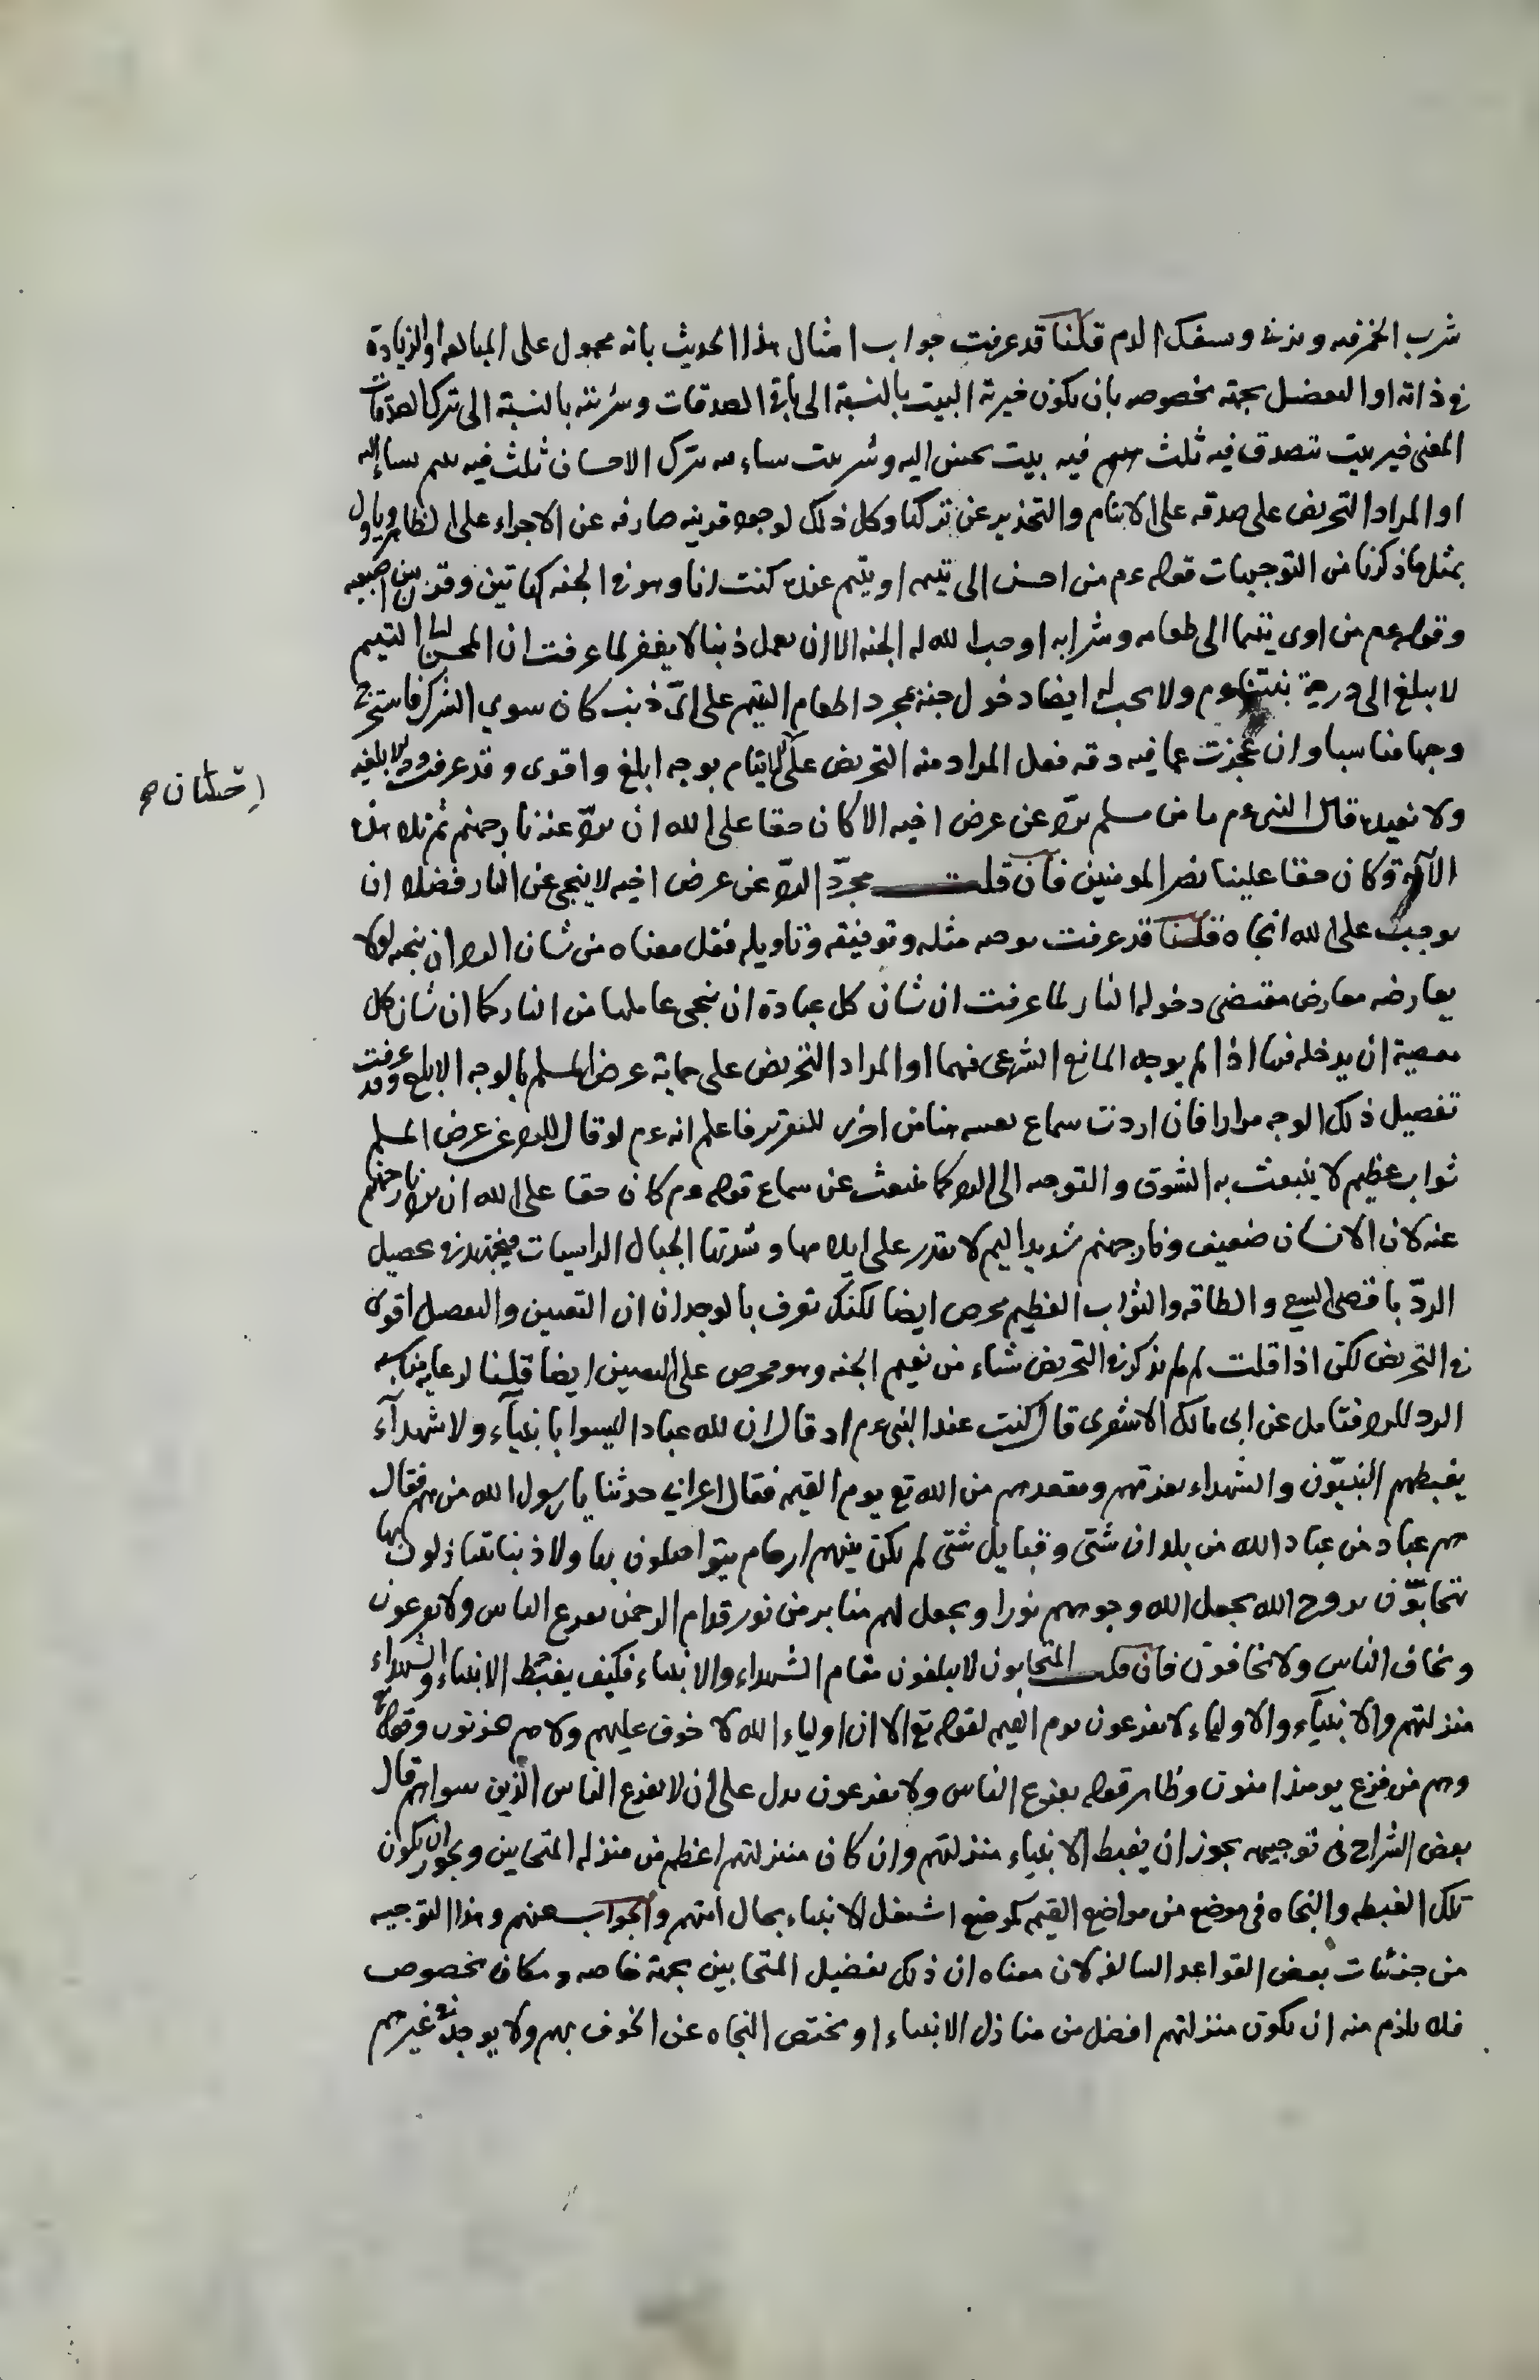 شرب الخمر فيه وزنى وسفك الدم قلنا قد عرفت جواب امثال هذا الحديث بانه محمول على المبالغة او الزيادة
في ذاته او التفضيل بجهة مخصوصه بان يكون خيرية البيت بالنسبة الى باقي الصدقات وشريته بالنسبة الى ترك الصدقات
المعنى خير بيت تتصدق فيه ثلث فيه بيت يحسن اليه وشر بيت ساء ترك الاحسان ثلث فيه يتيم يساء اليه
او المراد التحريض على صدقه على الايتام والتحذير عن تركها وكل ذلك لوجود قرينه صارفه عن الاجراء على الظاهر ويأول
بمثل ما ذكرنا من التوجيهات قوله عم من احسن الى يتيمه او يتيم عنده كنت انا وهو في الجنه كهاتين وقرن بين اصبعيه
وقوله عم من اوى يتيما الى طعامه وشرابه اوجب الله له الجنه الا ان يعمل ذنبا لا يغفر لما عرفت ان المحسن الى اليتيم
لا يبلغ الى درجة نبينا عم ولا يجب له ايضا دخول جنة بمجرد اطعام اليتيم على اىّ ذنب كان سوي الشرك فاستخرج
وجها مناسبا وان عجزت عما فيه دقه فعل المراد منه التحريض على الايتام بوجه ابلغ واقوى وقد عرفت وجه ابلغيه
احسان صح
ولا نعيده قال النبي عم ما من مسلم يردّ عن عرض اخيه الا كان حقا على الله ان يردّ عنه نار جهنم ثم تلا هذه
الآية وكان حقا علينا نصر المومنين فان قلت مجرّد الردّ عن عرض اخيه لا ينجى عن النار فضلا ان
يوجب على الله انجاه قلنا قد عرفت توجيه مثله وتوفيقه وتاويله فقل معناه من شان الرد ان ينجيه لولا
يعارضه معارض مقتضى دخوله النار لما عرفت ان شان كل عبادة ان ينجى عاملها من النار كما ان شان كل
معصية ان يدخله فيها اذا لم يوجد المانع الشرعى فيهما او المراد التحريض على حماية عرض المسلم بالوجه الابلغ وقد عرفت
تفصيل ذلك الوجه مرارا فان اردت سماع نفسه هنا من اخرى للتقرير فاعلم انه عم لو قال للرد عن عرض المسلم
ثواب عظيم لا ينبعث به الشوق والتوجه الى الرد كما ينبعث عن سماع قوله عم كان حقا على الله ان يرد نار جهنم
عنه لان الانسان ضعيف ونار جهنم شديد اليم لا يقدر على ايلامها وشدتها الجبال الراسيات فيجتهد في تحصيل
الردّ باقصى السعي والطاقه والثواب العظيم محرض ايضا لكنك تعرف بالوجدان ان التعيين والتفصيل اقوى
في التحريض لكن اذا قلت لم لم يذكر في التحريض شاء من نعيم الجنه وهو محرض على التعيين ايضا قلنا لرعاية مناسبه
الرد للرد فتامل عن ابى مالك الاشعرى قال كنت عند النبي عم اذ قال ان لله عبادا ليسوا بانبيآء ولا شهدآء
يغبطهم النبيّون والشهداء بقربهم ومقعدهم من الله تع يوم القيمه فقال اعرابي حدثنا يا رسول الله من هم فقال
هم عباد من عباد الله من بلدان شتى وقبايل شتى لم يكن بينهم ارحام يتواصلون بها ولا دنيا يتباذلون بها
يتحابّون بروح الله يجعل الله وجوههم نورا ويجعل لهم منابر من نور قدام الرحمن يفزع الناس ولا يفزعون
ويخاف الناس ولا يخافون فان قلت المتحابون لا يبلغون مقام الشهداء والانبياء فكيف يغبط الانبياء والشهداء
منزلتهم والانبيآء والاولياء لا يفزعون يوم القيمه لقوله تع الا ان اولياء الله لا خوف عليهم ولا هم يحزنون وقوله تع
وهم من فزع يومئذ امنون وظاهر قوله يفزع الناس ولا يفزعون يدل على ان لا يفزع الناس الذين سواهم قال
بعض الشراح فى توجيهه يجوز ان يغبط الانبياء منزلتهم وان كان منزلتهم اعظم من منزله المتحابين ويجوز ان يكون
تلك الغبطه والنجاه فى موضع من مواضع القيمه كموضع اشتغل الانبياء بحال امتهم والجواب عنهم وهذا التوجيه
من جزئيات بعض القواعد السالفه لان معناه ان ذلك تفضيل المتحابين بجهة خاصه ومكان مخصوص
فلا يلزم منه ان يكون منزلتهم افضل من منازل الانبياء او يختص النجاه عن الخوف بهم ولا يوجد في غيرهم